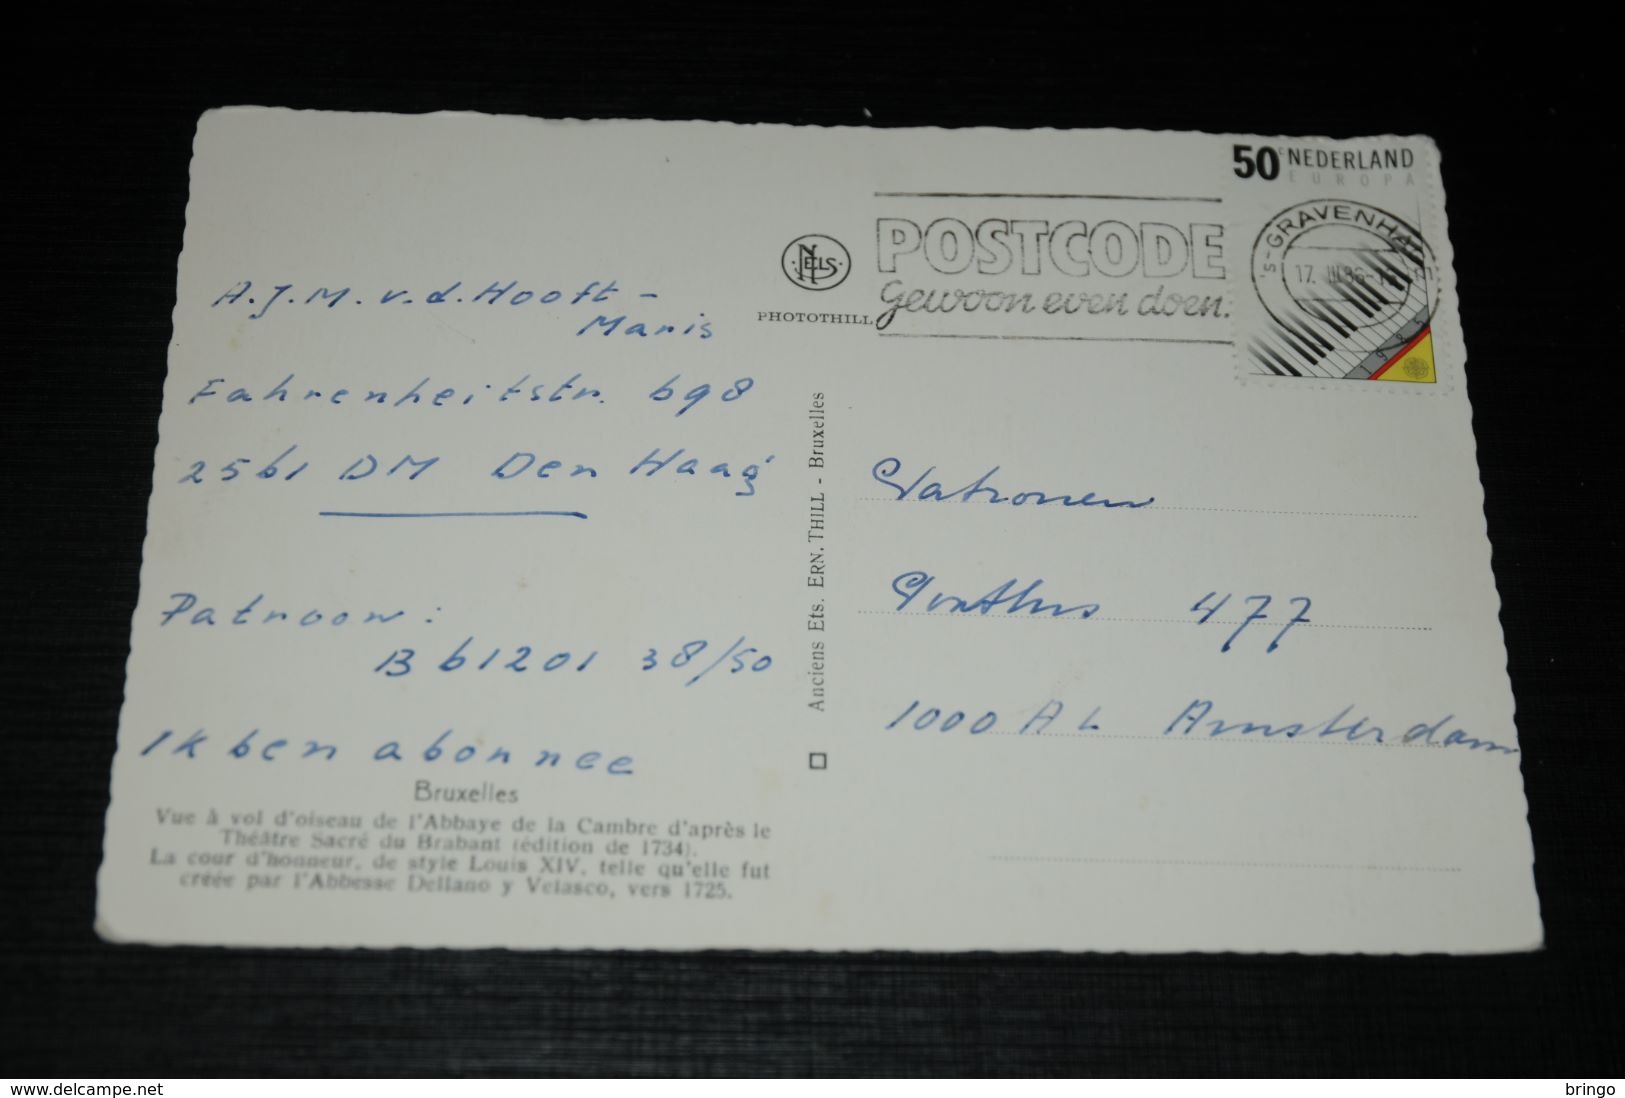 A.J.M. v.d. Hooft -
Maris
Fahrenheitstr. 698
2561 DM Den Haag
Patroon:
B 61201 38/50
Ik ben abonnee
Bruxelles
Vue à vol d'oiseau de l'Abbaye de la Cambre d'après le
Théâtre Sacré du Brabant (édition de 1734).
La cour d'honneur, de style Louis XIV, telle qu'elle fut
créée par l'Abbesse Dellano y Velasco, vers 1725.
NELS
PHOTOTHILL
Anciens Ets. ERN. THILL - Bruxelles
POSTCODE
Gewoon even doen.
50c NEDERLAND
EUROPA
's-GRAVENHA
17. III.86-1
Patronen
Postbus 477
1000 AL Amsterdam
delcampe.net
bringo